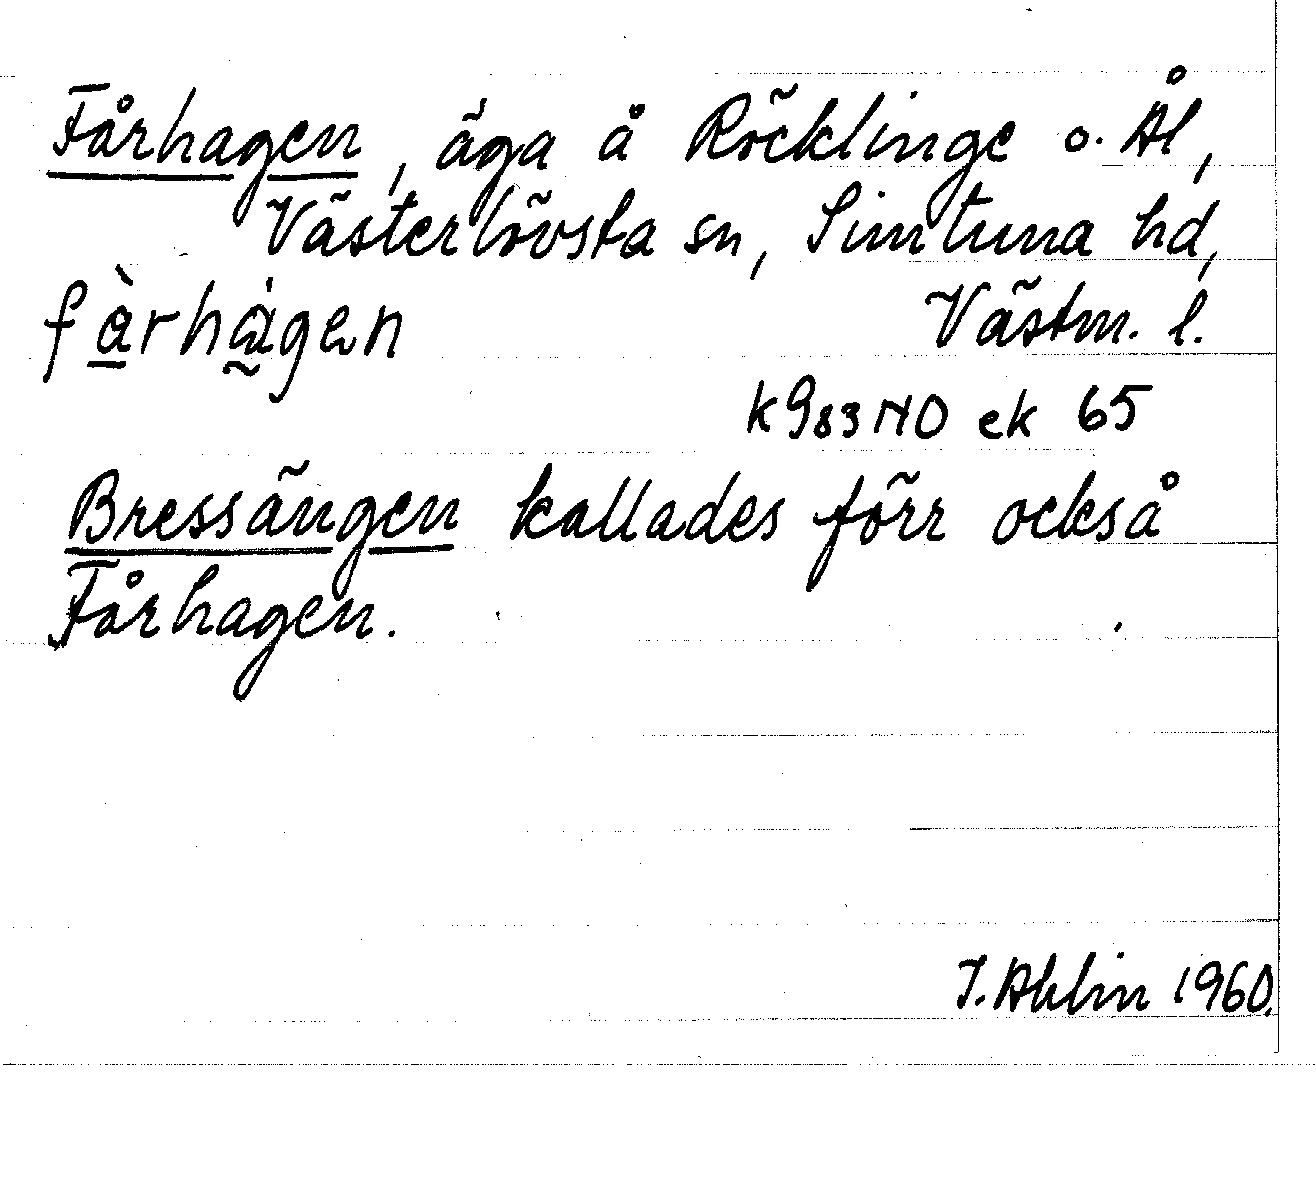 Fårhagen, äga å Röcklinge o. Ål,
Västerlövsta sn, Simtuna hd,
fàrhàgen
Västm. l.
k983 NO ek 65
Bressängen kallades förr också
Fårhagen.
J. Ahlin 1960.